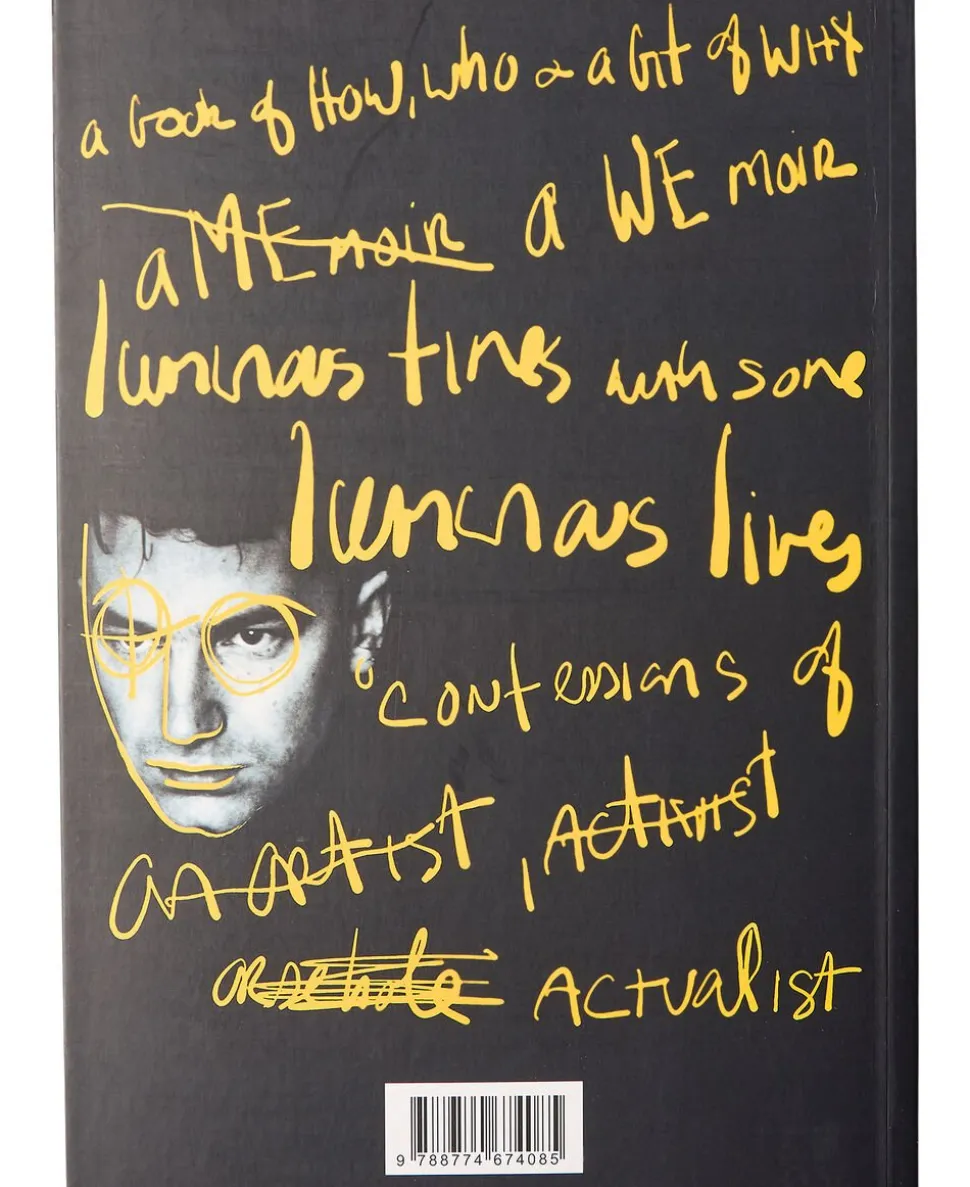 a book of HOW, who & a bit of WHY
a MEmoir a WE moir
luminous times with some
luminous lives
confessions of
an artist, Activist
Actualist
9 788774 674085